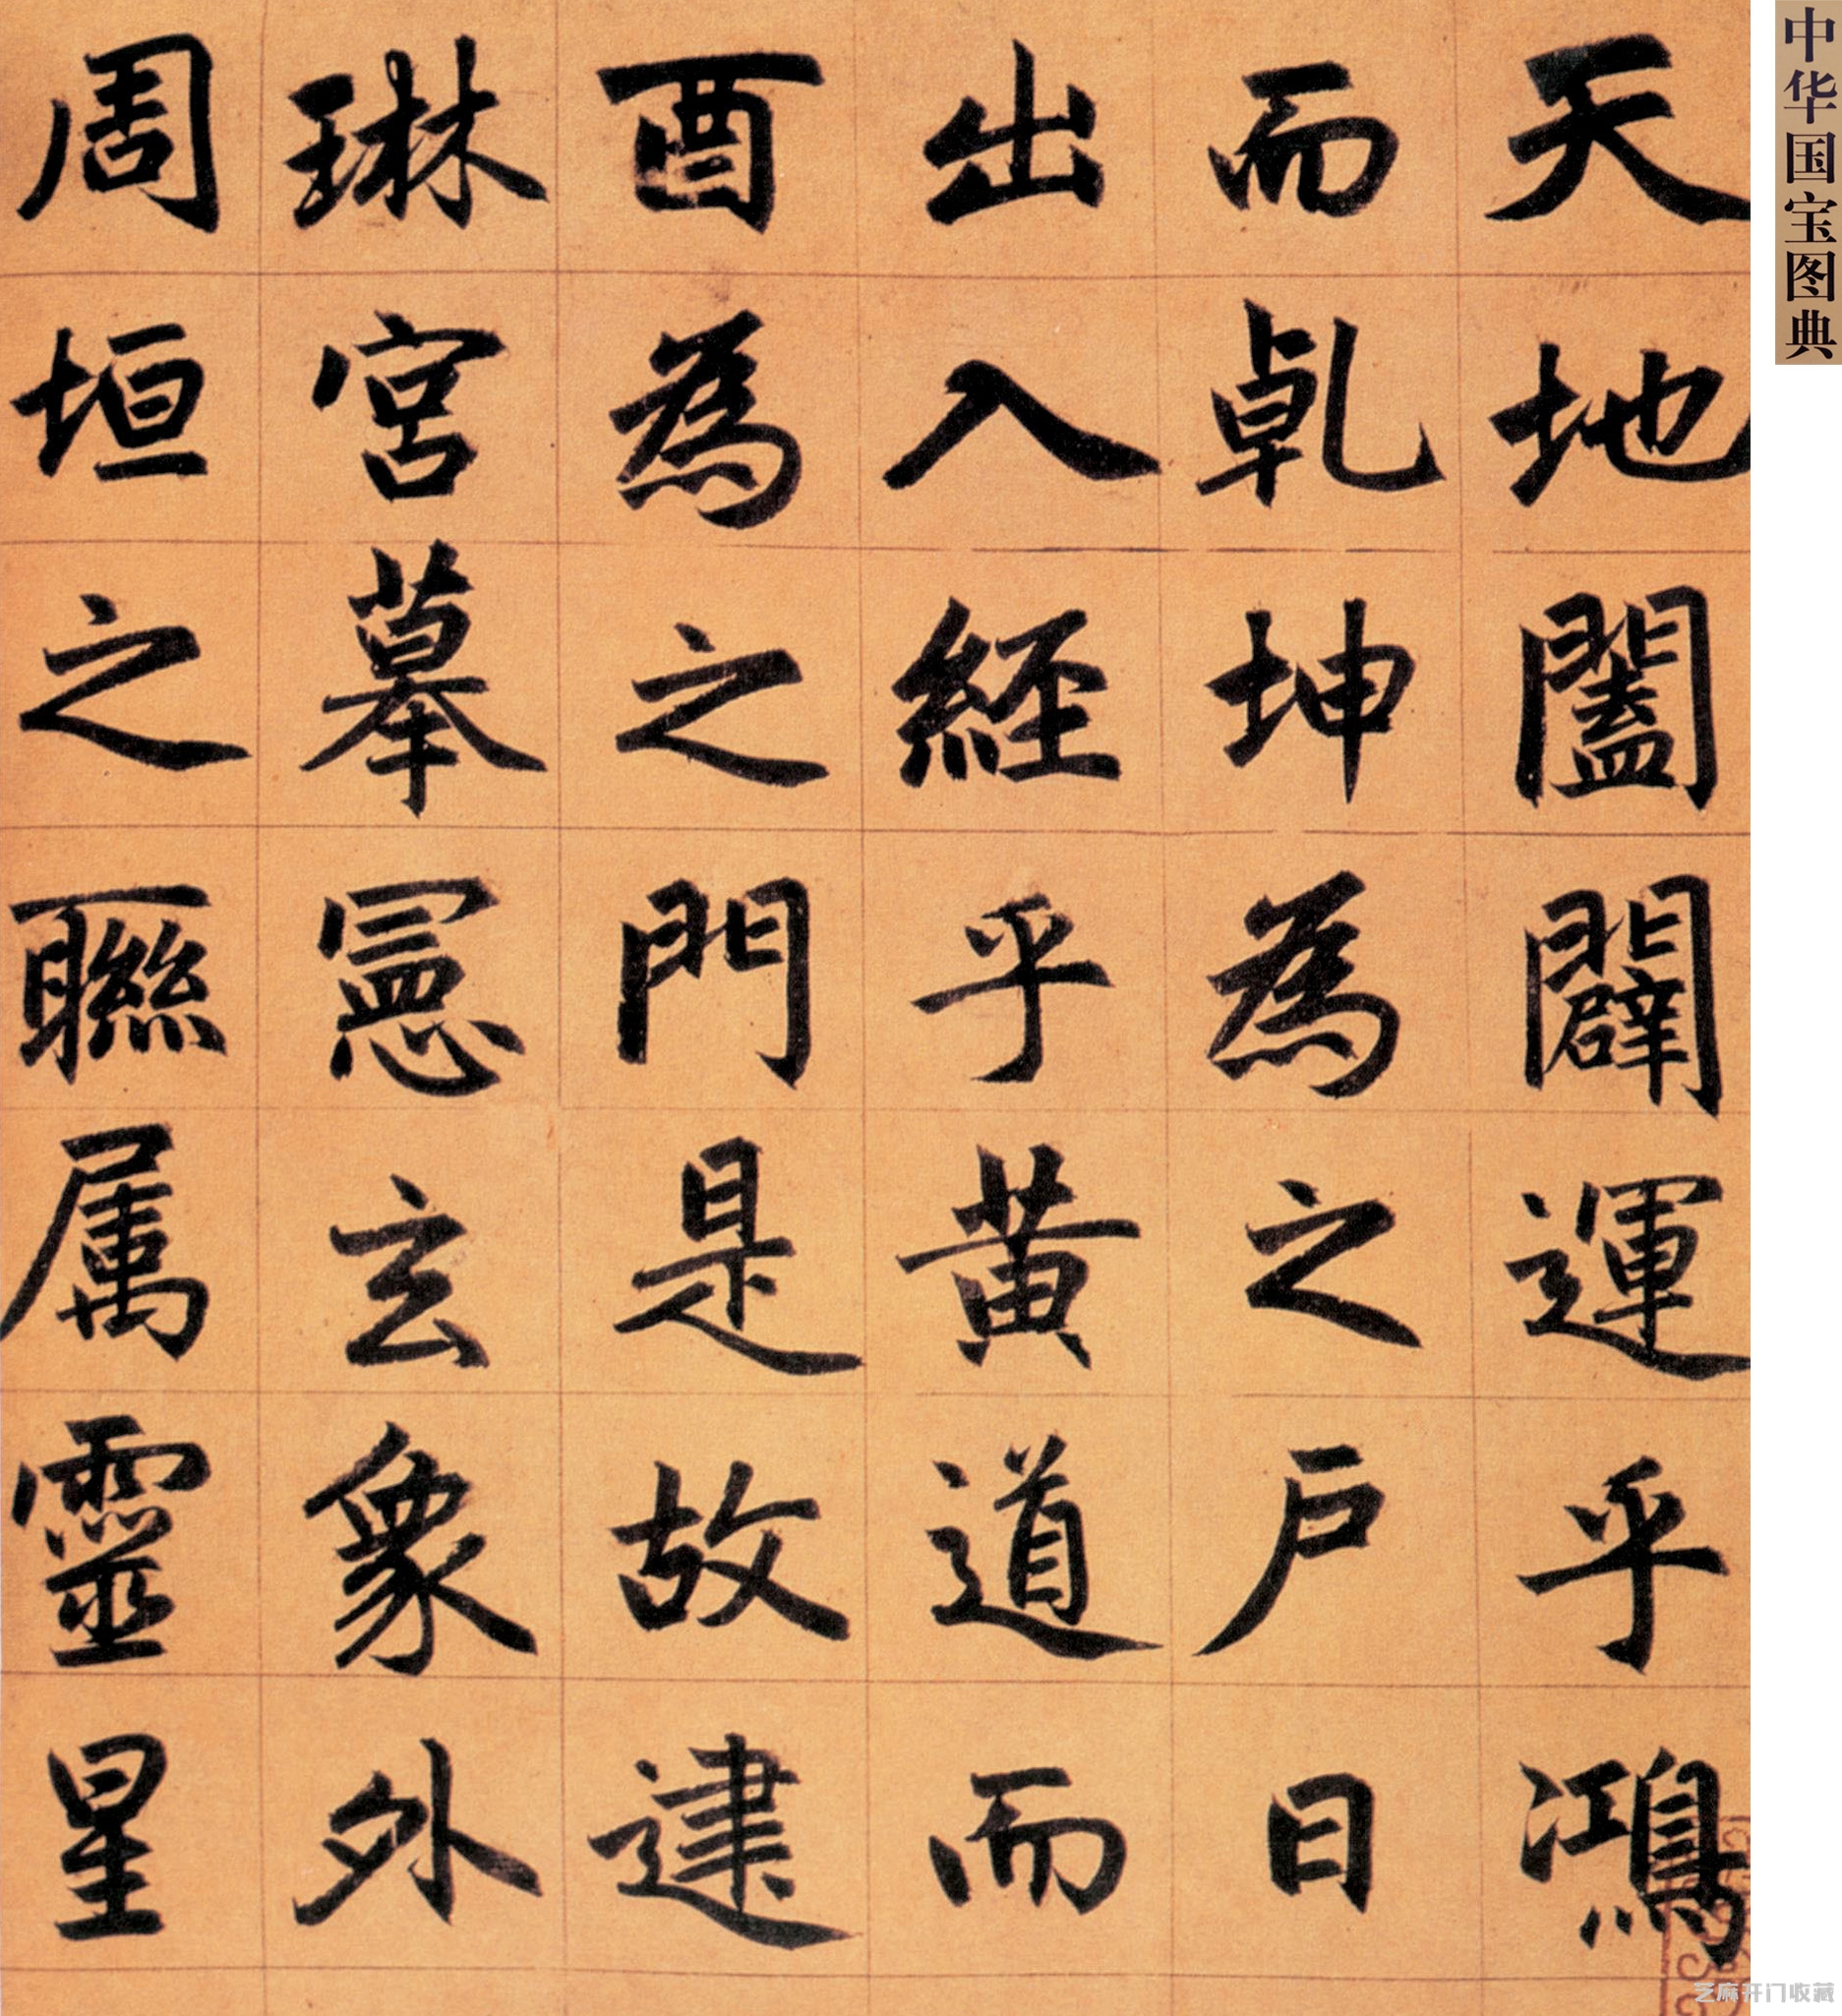 中华国宝图典
天地闔闢運乎鴻
而乾坤為之戶日
出入經乎黃道而
酉為之門是故建
琳宮摹憲玄象外
周垣之聯屬靈星
芝麻开门收藏